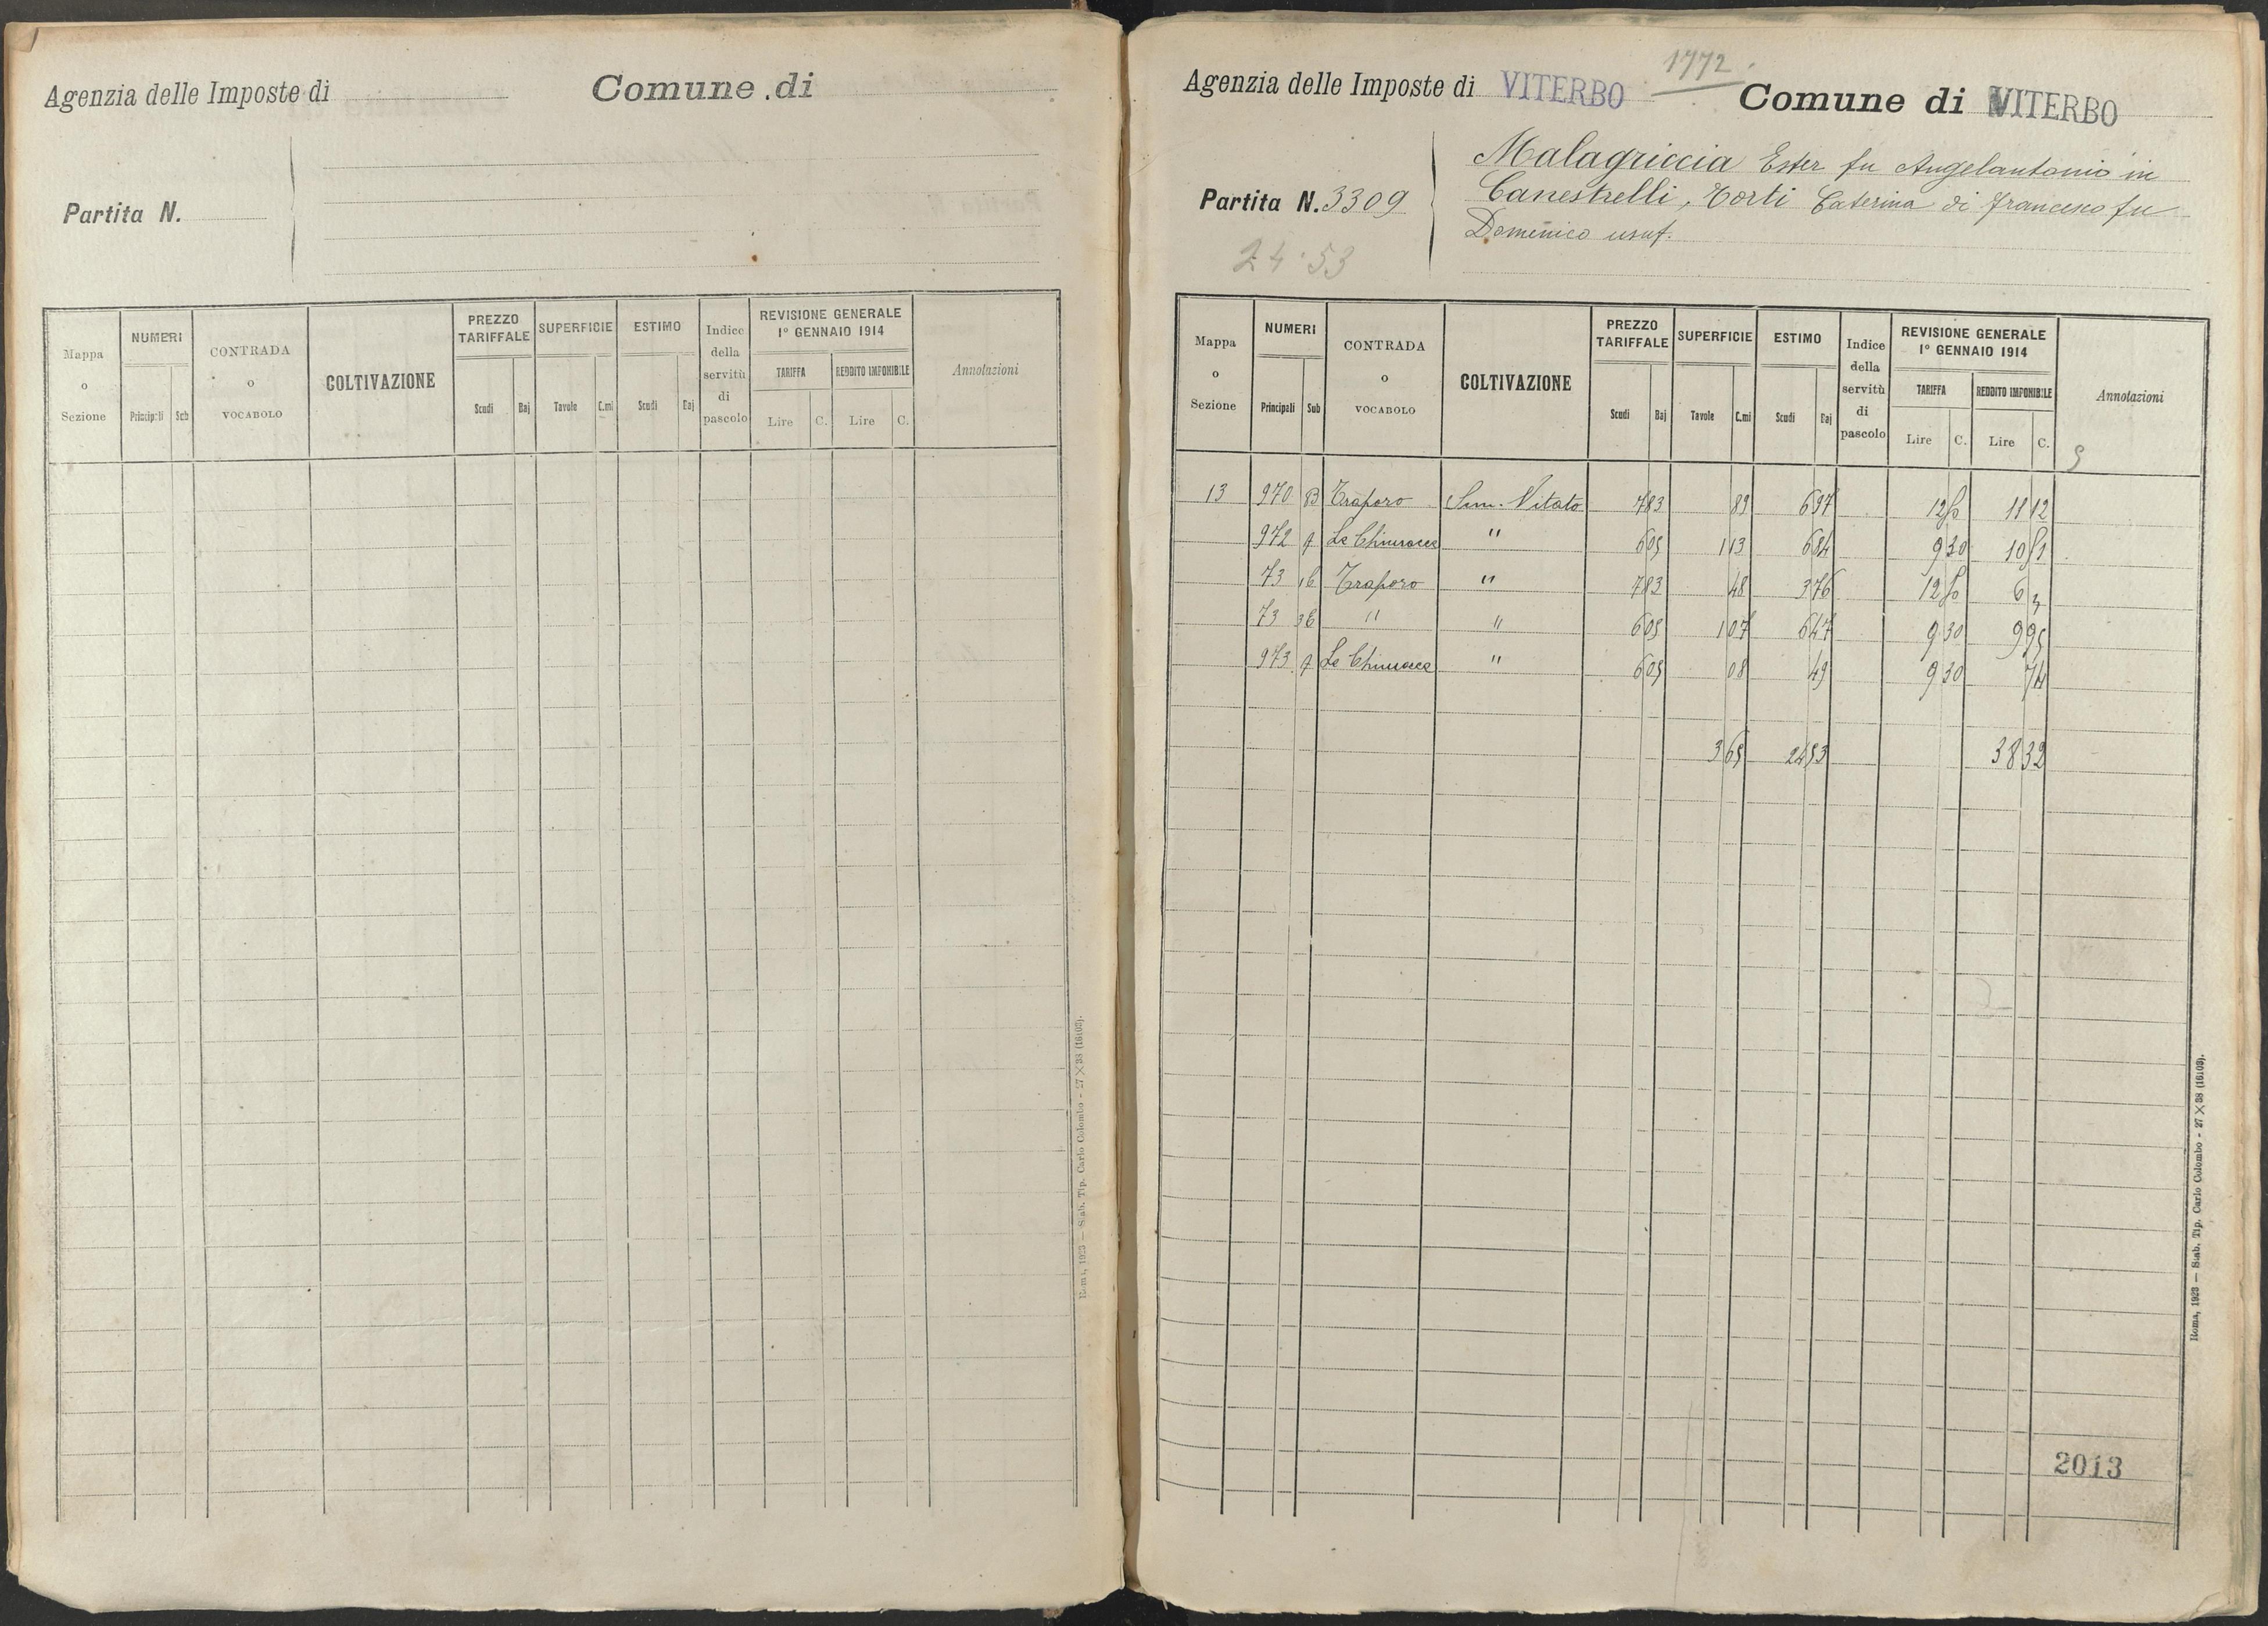 Agenzia delle Imposte di
Comune di
Partita N.
Mappa o Sezione
NUMERI
Principali Sub
CONTRADA o VOCABOLO
COLTIVAZIONE
PREZZO TARIFFALE
Scudi Baj
SUPERFICIE
Tavole C.mi
ESTIMO
Scudi Baj
Indice della servitù di pascolo
REVISIONE GENERALE
1° GENNAIO 1914
TARIFFA REDDITO IMPONIBILE
Lire C. Lire C.
Annotazioni
Roma, 1923 — Stab. Tip. Carlo Colombo - 27 X 38 (16103).
1772
Agenzia delle Imposte di VITERBO Comune di VITERBO
Partita N. 3309
24.53
Malagriccia Ester fu Angelantonio in
Canestrelli, Torti Caterina di Francesco fu
Domenico usuf.
Mappa o Sezione
NUMERI
Principali Sub
CONTRADA o VOCABOLO
COLTIVAZIONE
PREZZO TARIFFALE
Scudi Baj
SUPERFICIE
Tavole C.mi
ESTIMO
Scudi Baj
Indice della servitù di pascolo
REVISIONE GENERALE
1° GENNAIO 1914
TARIFFA REDDITO IMPONIBILE
Lire C. Lire C.
Annotazioni
13 970 Traporo Sem. Vitato 7 83 89 6 97 12 50 11 12
972 Le " 6 05 1 13 6 84 9 30 10 51
73 Traporo " 7 83 48 3 76 12 50 6
73 " " 6 05 1 07 6 47 9 30 9 95
973 Le " 6 05 08 49 9 30 74
3 65 24 53 38 32
2013
Roma, 1923 — Stab. Tip. Carlo Colombo - 27 X 38 (16103).